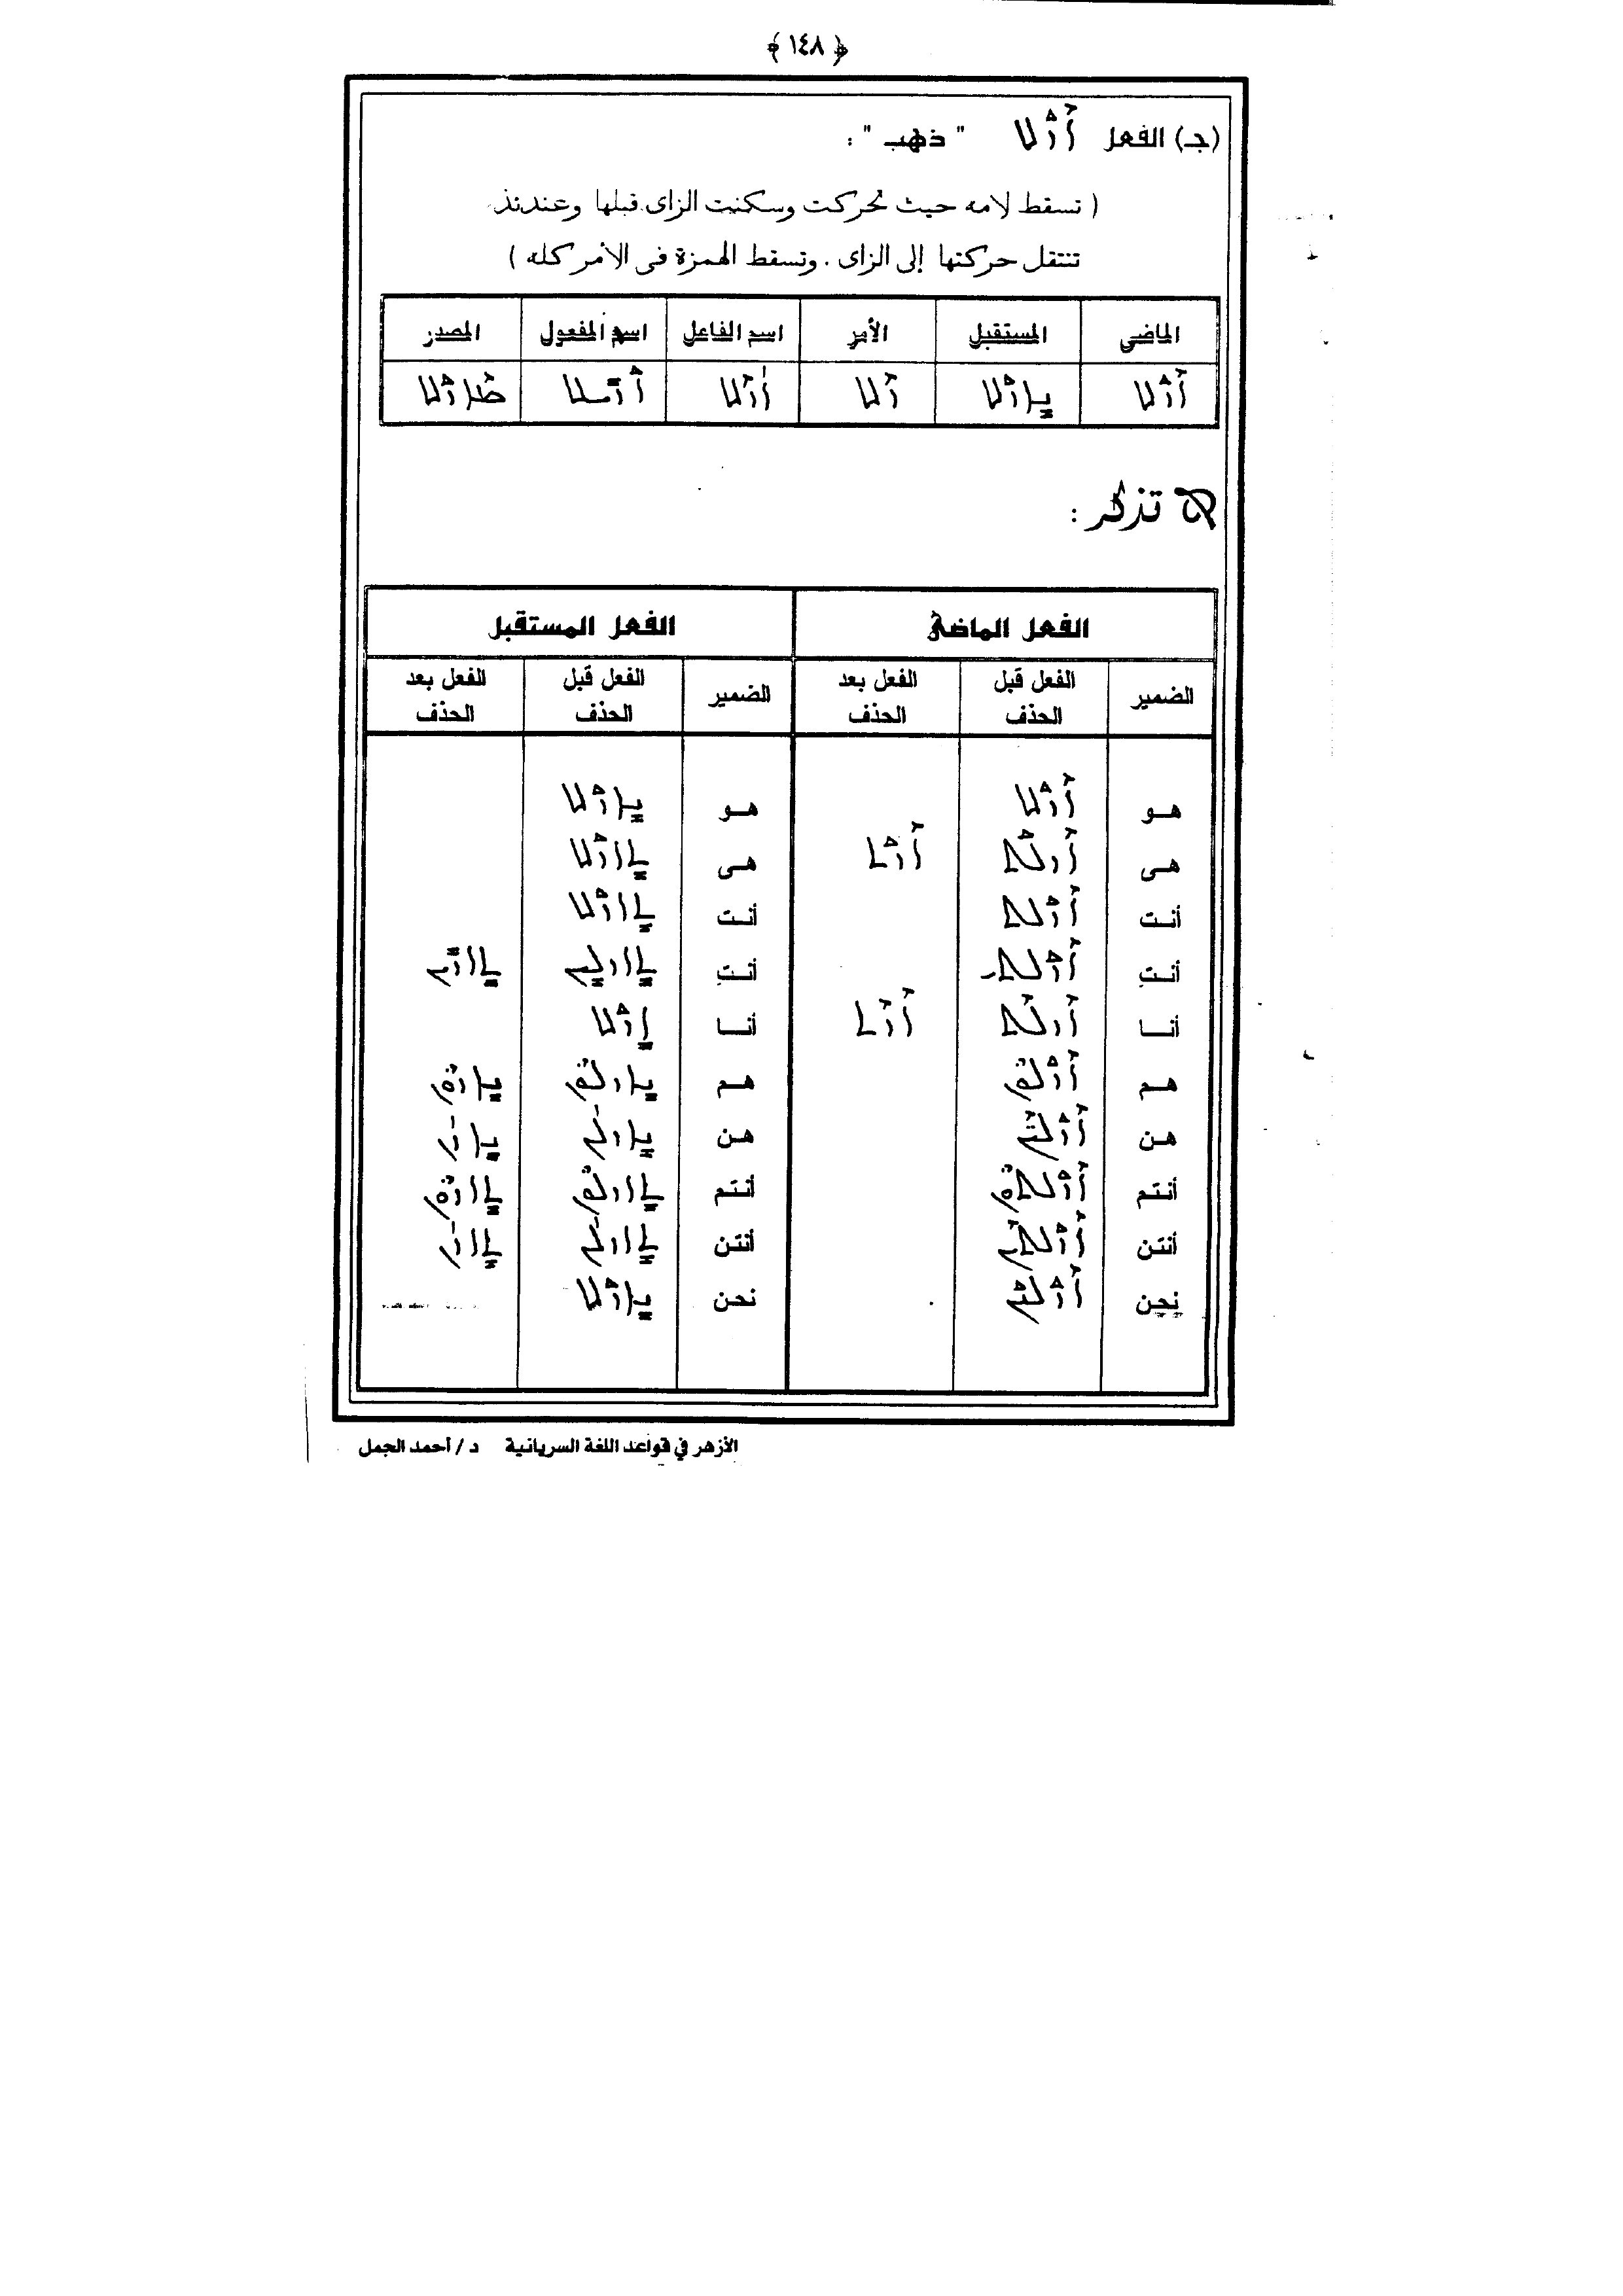 ﴿ ١٤٨ ﴾
(جـ) الفعل ܐܙܠ " ذهب " :
( تسقط لامه حيث تحركت وسكنت الزاى قبلها وعندئذ
تنتقل حركتها إلى الزاى . وتسقط الهمزة فى الأمر كله )
الماضى المستقبل الأمر اسم الفاعل اسم المفعول المصدر
ܐܙܠ ܢܐܙܠ ܙܠ ܐܙܠ ܐܙܝܠ ܡܐܙܠ
تذكر :
الفعل الماضى الفعل المستقبل
الضمير الفعل قبل الحذف الفعل بعد الحذف الضمير الفعل قبل الحذف الفعل بعد الحذف
هـو ܐܙܠ هـو ܢܐܙܠ
هـى ܐܙܠܬ ܐܙܬ هـى ܬܐܙܠ
أنـت ܐܙܠܬ أنـت ܬܐܙܠ
أنـتِ ܐܙܠܬܝ أنـتِ ܬܐܙܠܝܢ ܬܐܙܝܢ
أنـا ܐܙܠܬ ܐܙܬ أنـا ܐܙܠ
هـم ܐܙܠܘܢ هـم ܢܐܙܠܘܢ ܢܐܙܘܢ
هـن ܐܙܠܝܢ هـن ܢܐܙܠܢ ܢܐܙܢ
أنتم ܐܙܠܬܘܢ أنتم ܬܐܙܠܘܢ ܬܐܙܘܢ
أنتن ܐܙܠܬܝܢ أنتن ܬܐܙܠܢ ܬܐܙܢ
نحن ܐܙܠܢ نحن ܢܐܙܠ
الأزهر في قواعد اللغة السريانية د / أحمد الجمل